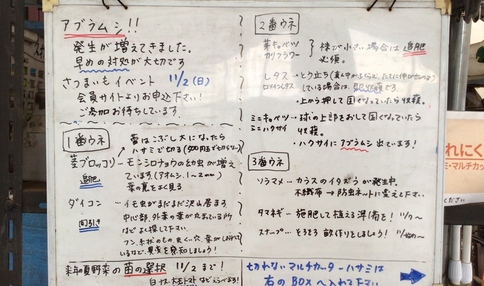 アブラムシ!!
発生が増えてきました。
早めの対処が大切です
さつまいもイベント 11/2(日)
会員サイトよりお申込下さい!
ご参加お待ちしています。
1番ウネ
蕾はこぶし大になったら
ハサミで切る(500円玉でも
茎ブロッコリ
追肥
モンシロチョウの幼虫が増え
ています(アオムシ、1~2mm)
葉の裏をよく見る
ダイコン
間引き
イモ虫がまだまだ沢山居ます
中心部、外葉の葉が
よく探して下さい。
フン、
いるなど、異変を発見しましょう!
来年の夏野菜の苗の選択 11/2まで!
2番ウネ
茎キャベツ
カリフラワー
株が小さい場合は追肥
必須。
レタス
ロメインレタス
とう立ち
している場合は、
上から押して固くなっていたら収穫。
ミニキャベツ
ミニハクサイ
球の上部をおして固くなっていたら
収穫。
ハクサイにアブラムシ出ています!
3番ウネ
ソラマメ カラスのイタズラが発生中。
不織布→防虫ネットに変えて下さい
タマネギ 施肥して植える準備を!
スナップ そろそろ畝作りをしましょう!
切れないマルチカッター・ハサミは
右のBOXへ入れて下さい
れにく
ミ・マルチカッ
ください